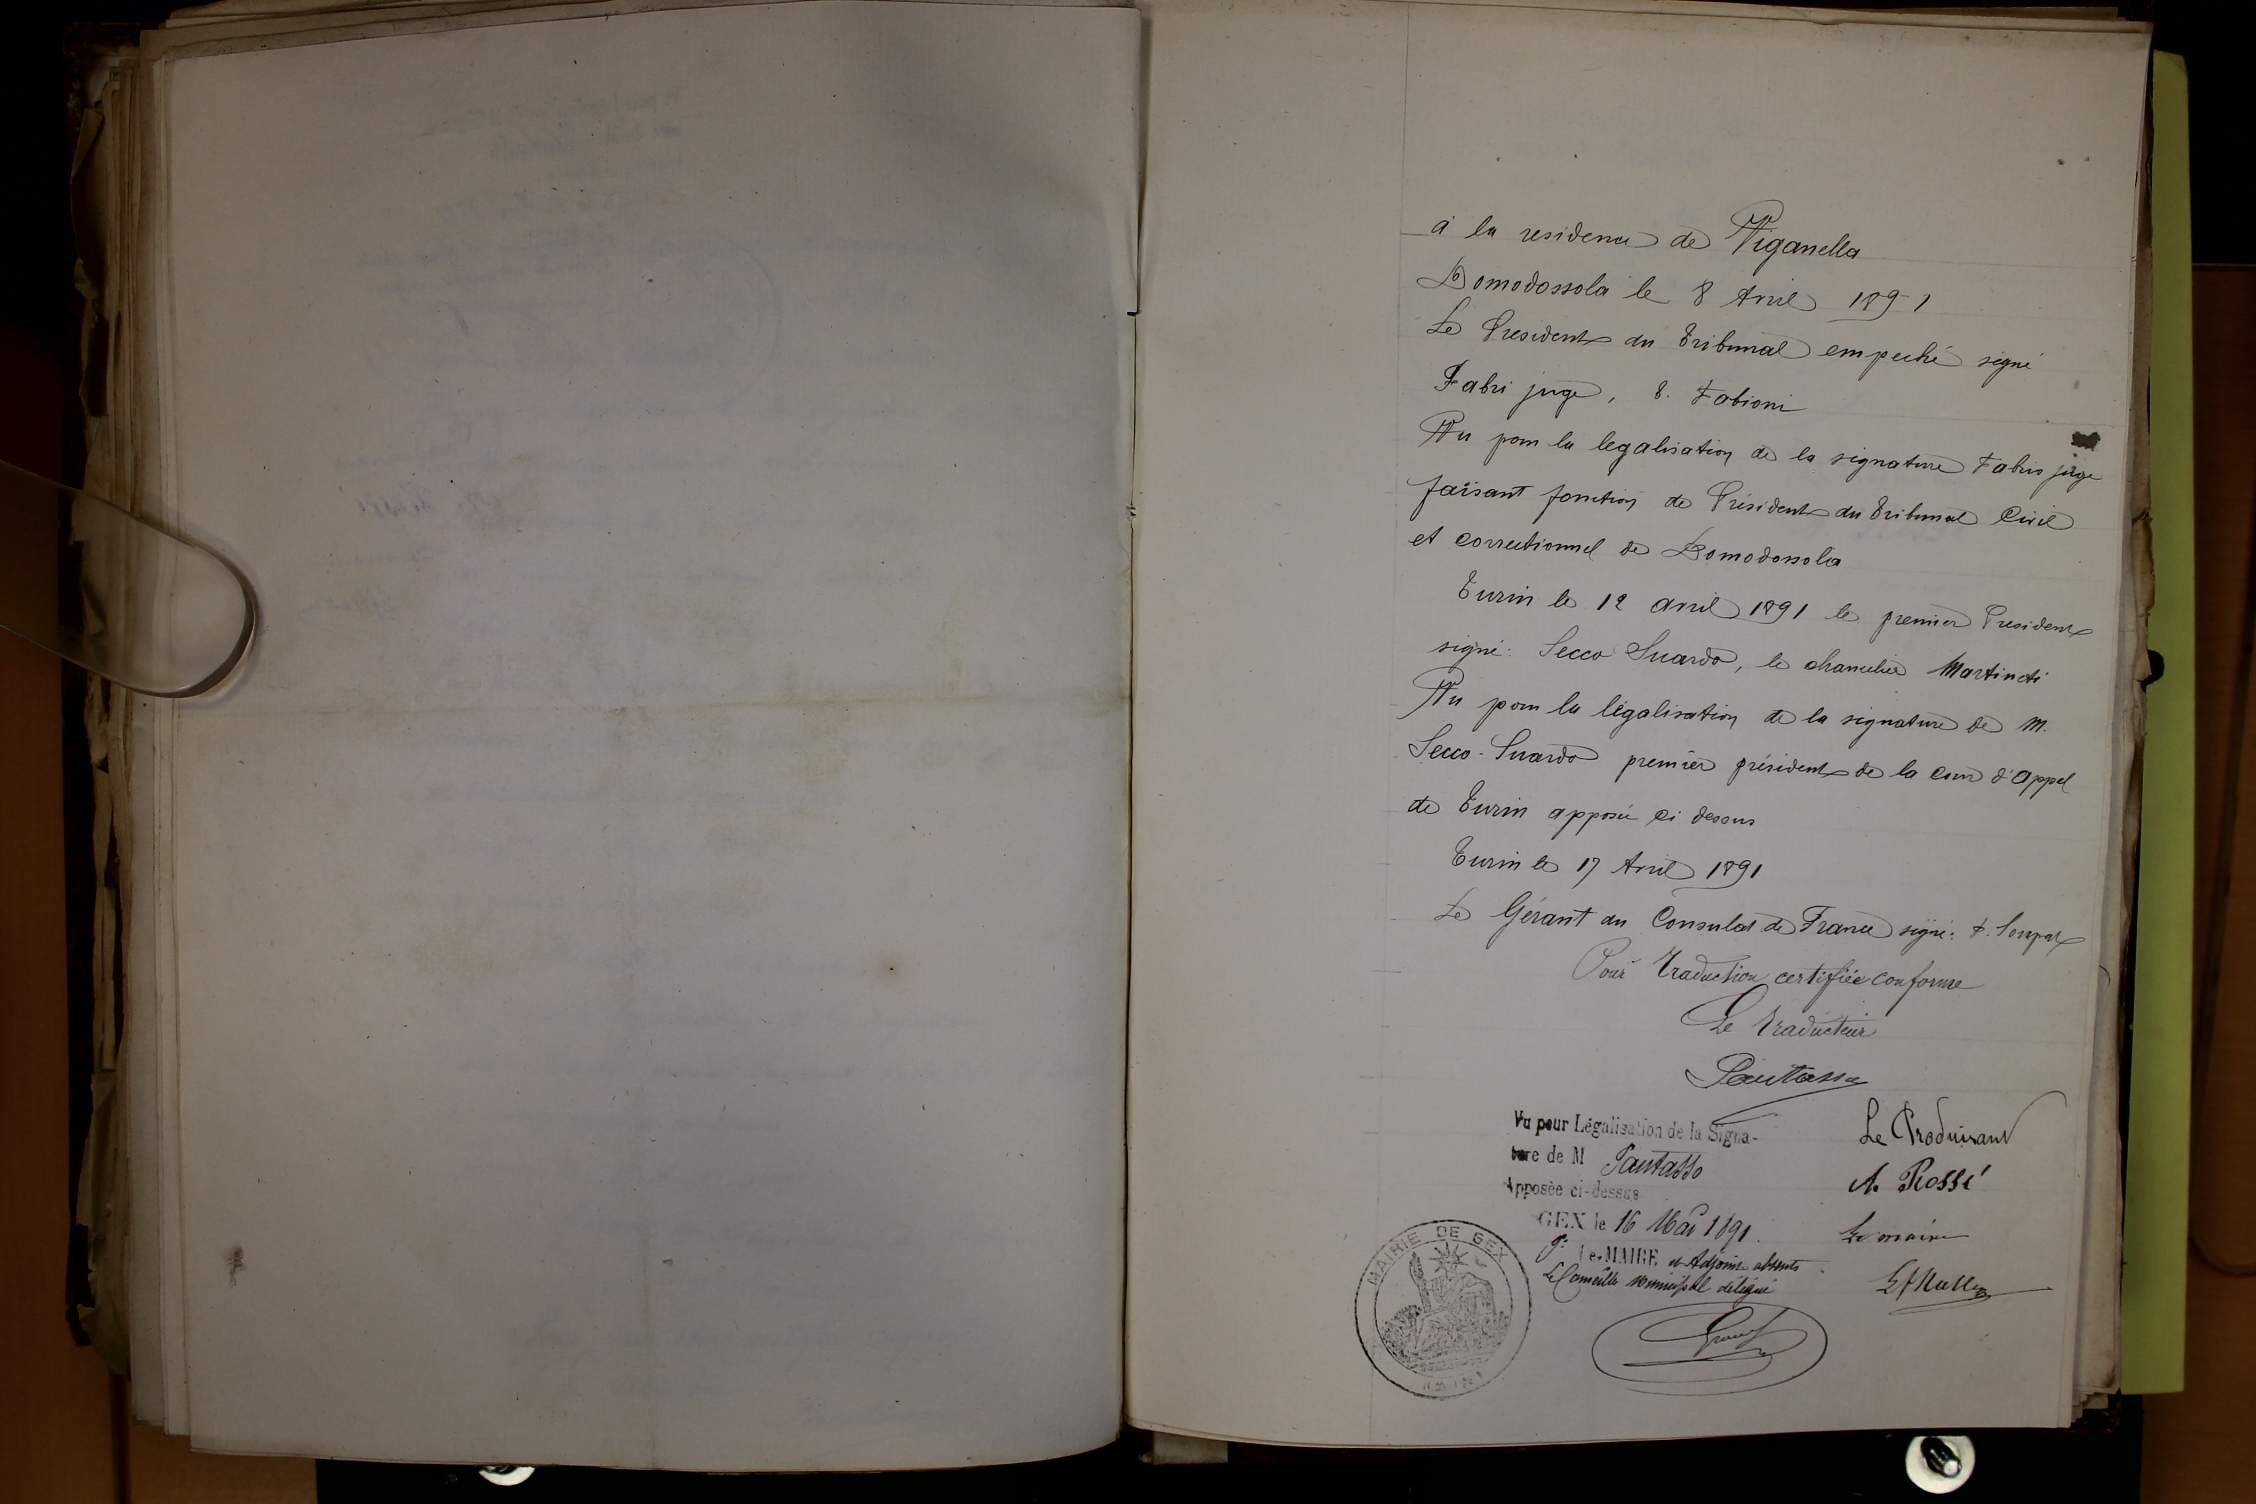 à la residence de Viganella
Domodossola le 8 Avril 1891
Le President du Tribunal empeché signé
Fabri juge,
Vu pour la legalisation de la signature Fabris juge
faisant fonction de Président du Tribunal Civil
et correctionnel de Domodossola
Turin le 12 avril 1891 le premier President
signé: Secco Suardo, le chancelier Martineti
Vu pour la légalisation de la signature de M.
Secco-Suardo premier président de la cour d'Appel
de Turin apposée ci dessus
Turin le 17 Avril 1891
Le Gérant du Consulat de France signé:
Pour traduction certifiée conforme
Le traducteur
Pautasso
Vu pour Légalisation de la Signa-
ture de M Pautasso
Apposée ci-dessus
GEX le 16 Mai 1891.
Pr. Le MAIRE et Adjoint absents
Le Conseiller municipal délégué
MAIRIE DE GEX
Le Produisant
A. Rossi
Le maire